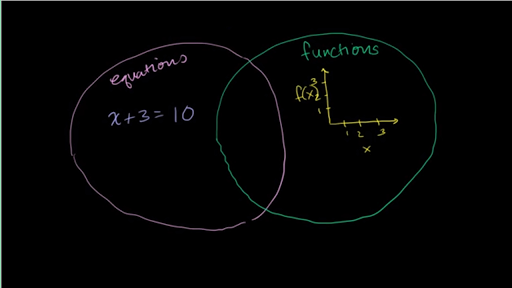 equations
functions
x+3=10
f(x)
3
2
1
1 2 3
x